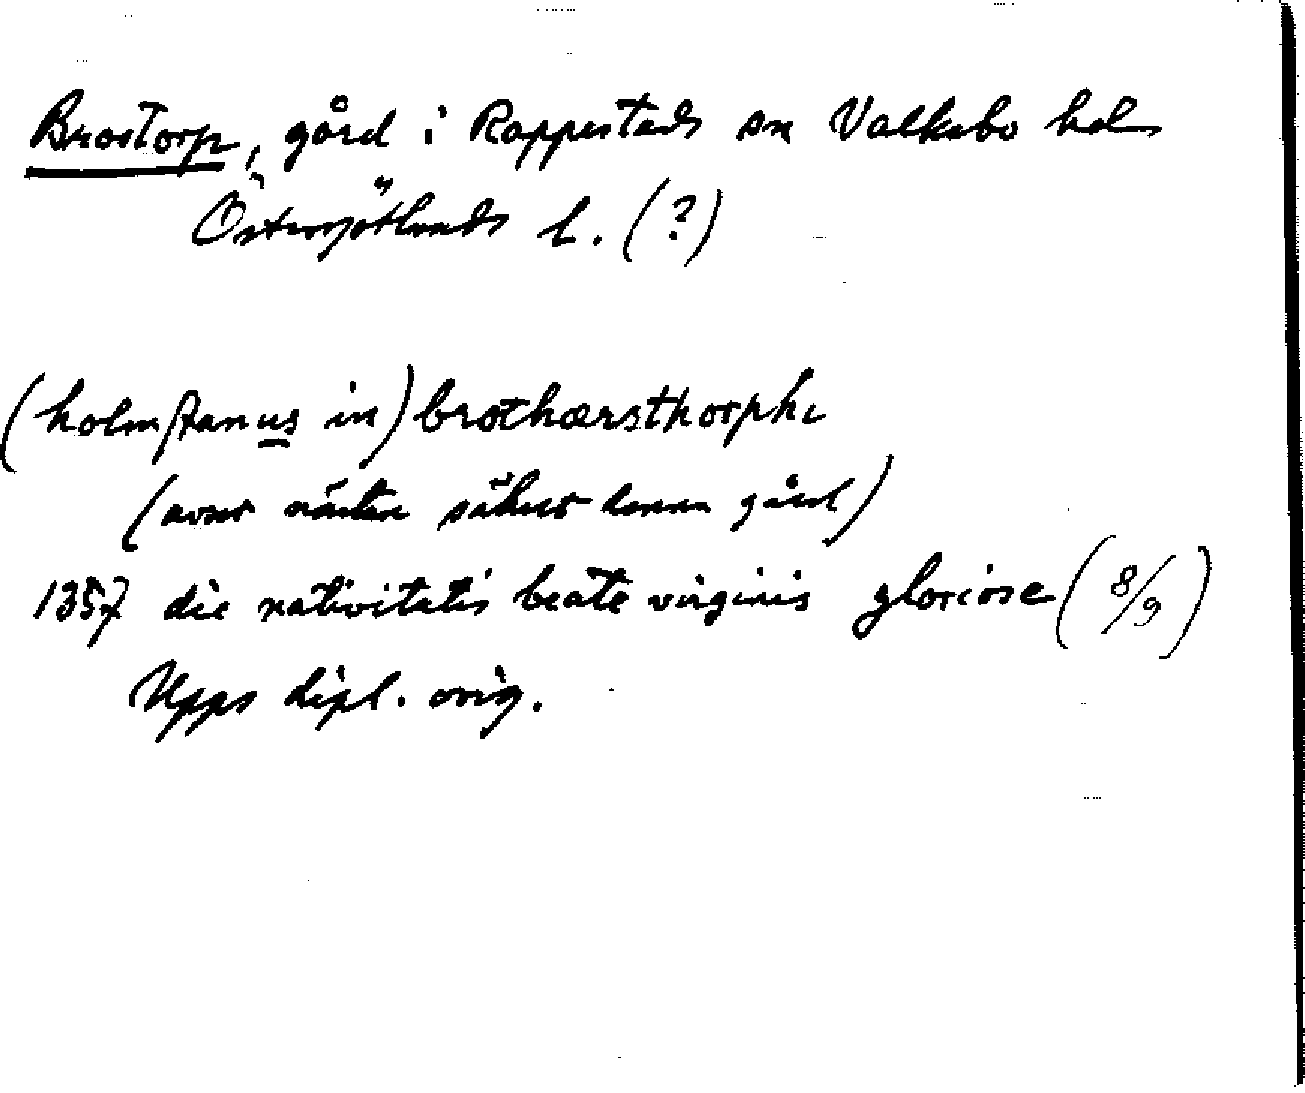 Brostorp, gård i Rappestads sn Valkebo hd
Östergötlands l. (?)
(holmstanus in) brothærsthorphe
(avser nästan säkert denna gård)
1357 die nativitatis beate virginis gloriose (8/9)
Upps dipl. orig.